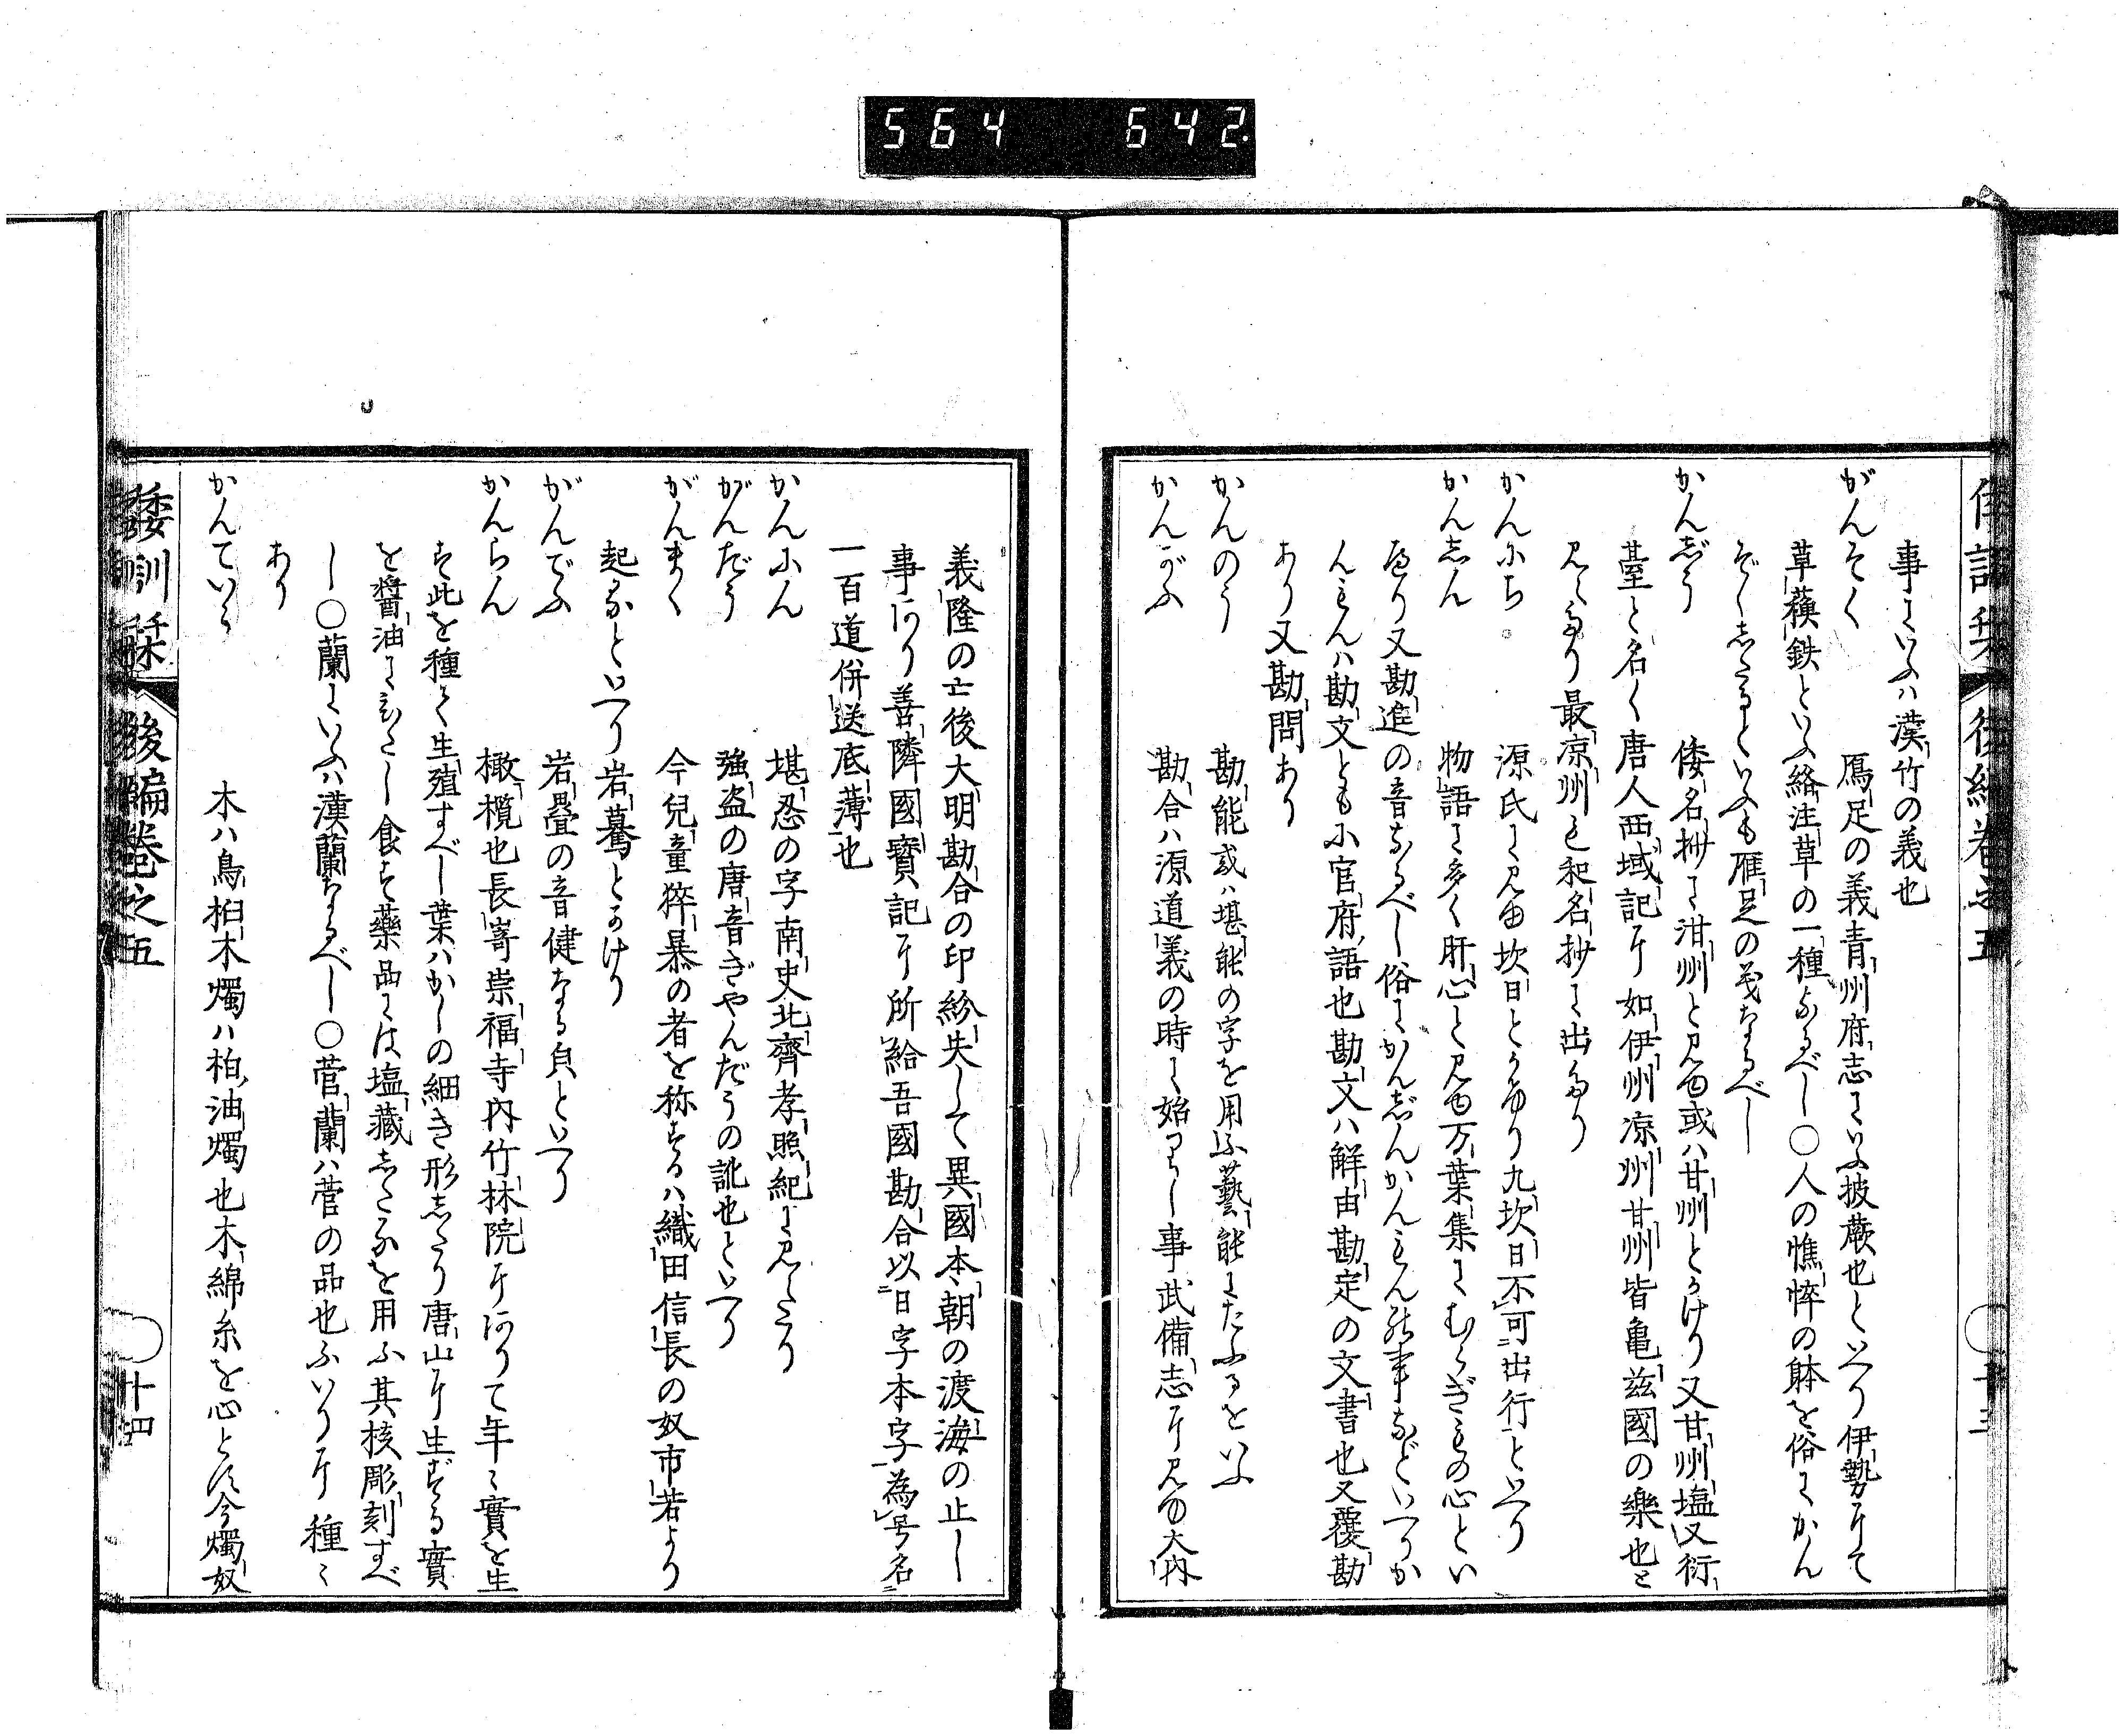 564 642.
倭訓栞 後編巻之五 ○十三
事にいふハ漢竹の義也
がんそく 鴈足の義青州府志にいふ披蕨也といへり伊勢にて
草蘓鉄といふ絡注草の一種なるべし○人の憔悴の躰を俗にかん
ぞくしたるといふも雁足の義なるべし
かんじう 倭名抄に泔州と見ゆ或ハ甘州とかけり又甘州塩又衍
臺と名く唐人西域記に如伊州凉州甘州皆亀玆國の樂也と
見えたり最凉州も和名抄に出たり
かんにち 源氏に見ゆ坎日とかけり九坎日不可出行といへり
かんしん 物語に多く肝心と見ゆ万葉集にむらぎもの心とい
へり又勘進の音なるべし俗にかんじんかんもん
んもんハ勘文とも官府語也勘文ハ解由勘定の文書也又覆勘
あり又勘問あり
かんのう 勘能或ハ堪能の字を用ふ藝能にたふるをいふ
かんがふ 勘合ハ源道義の時に始りし事武備志に見ゆ大内
義隆の亡後大明勘合の印紛失して異國本朝の渡海の止し
事にあり善隣國寳記に所給吾國勘合以日字本字為号名
一百道併送底薄也
かんにん 堪忍の字南史北齊孝照紀に見えたり
がんだう 強盗の唐音ぎやんだうの訛也といへり
がんまく 今兒童猝暴の者を称するハ織田信長の奴市若より
起るといへり岩驀とかけり
がんでふ 岩疊の音健なる皃といへり
かんらん 橄欖也長嵜崇福寺内竹林院にありて年々實を生
ず此を種て生殖すべし葉ハかしの細き形したり唐山に生ずる實
を醬油にひたし食ず藥品には塩藏したるを用ふ其核彫刻すべ
し○蘭にいふハ漢蘭なるべし○菅蘭ハ菅の品也ふいりに種々
あり
かんていら 木ハ烏桕木燭ハ柏油燭也木綿糸を心とす今燭奴
倭訓栞 後編巻之五 ○十四